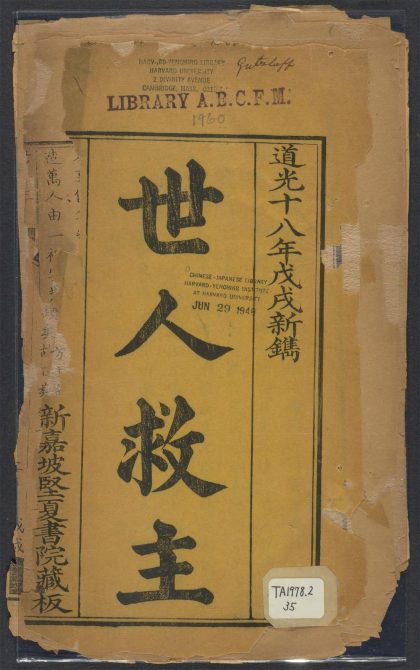 HARVARD-YENCHING LIBRARY
HARVARD UNIVERSITY
2 DIVINITY AVENUE
CAMBRIDGE, MASS.
Gutzlaff
LIBRARY A.B.C.F.M.
1960
道光十八年戊戌新鐫
世人救主
新嘉坡堅夏書院藏板
造萬人由一
CHINESE-JAPANESE LIBRARY
HARVARD-YENCHING INSTITUTE
AT HARVARD UNIVERSITY
JUN 29 1948
TA1978.2
35